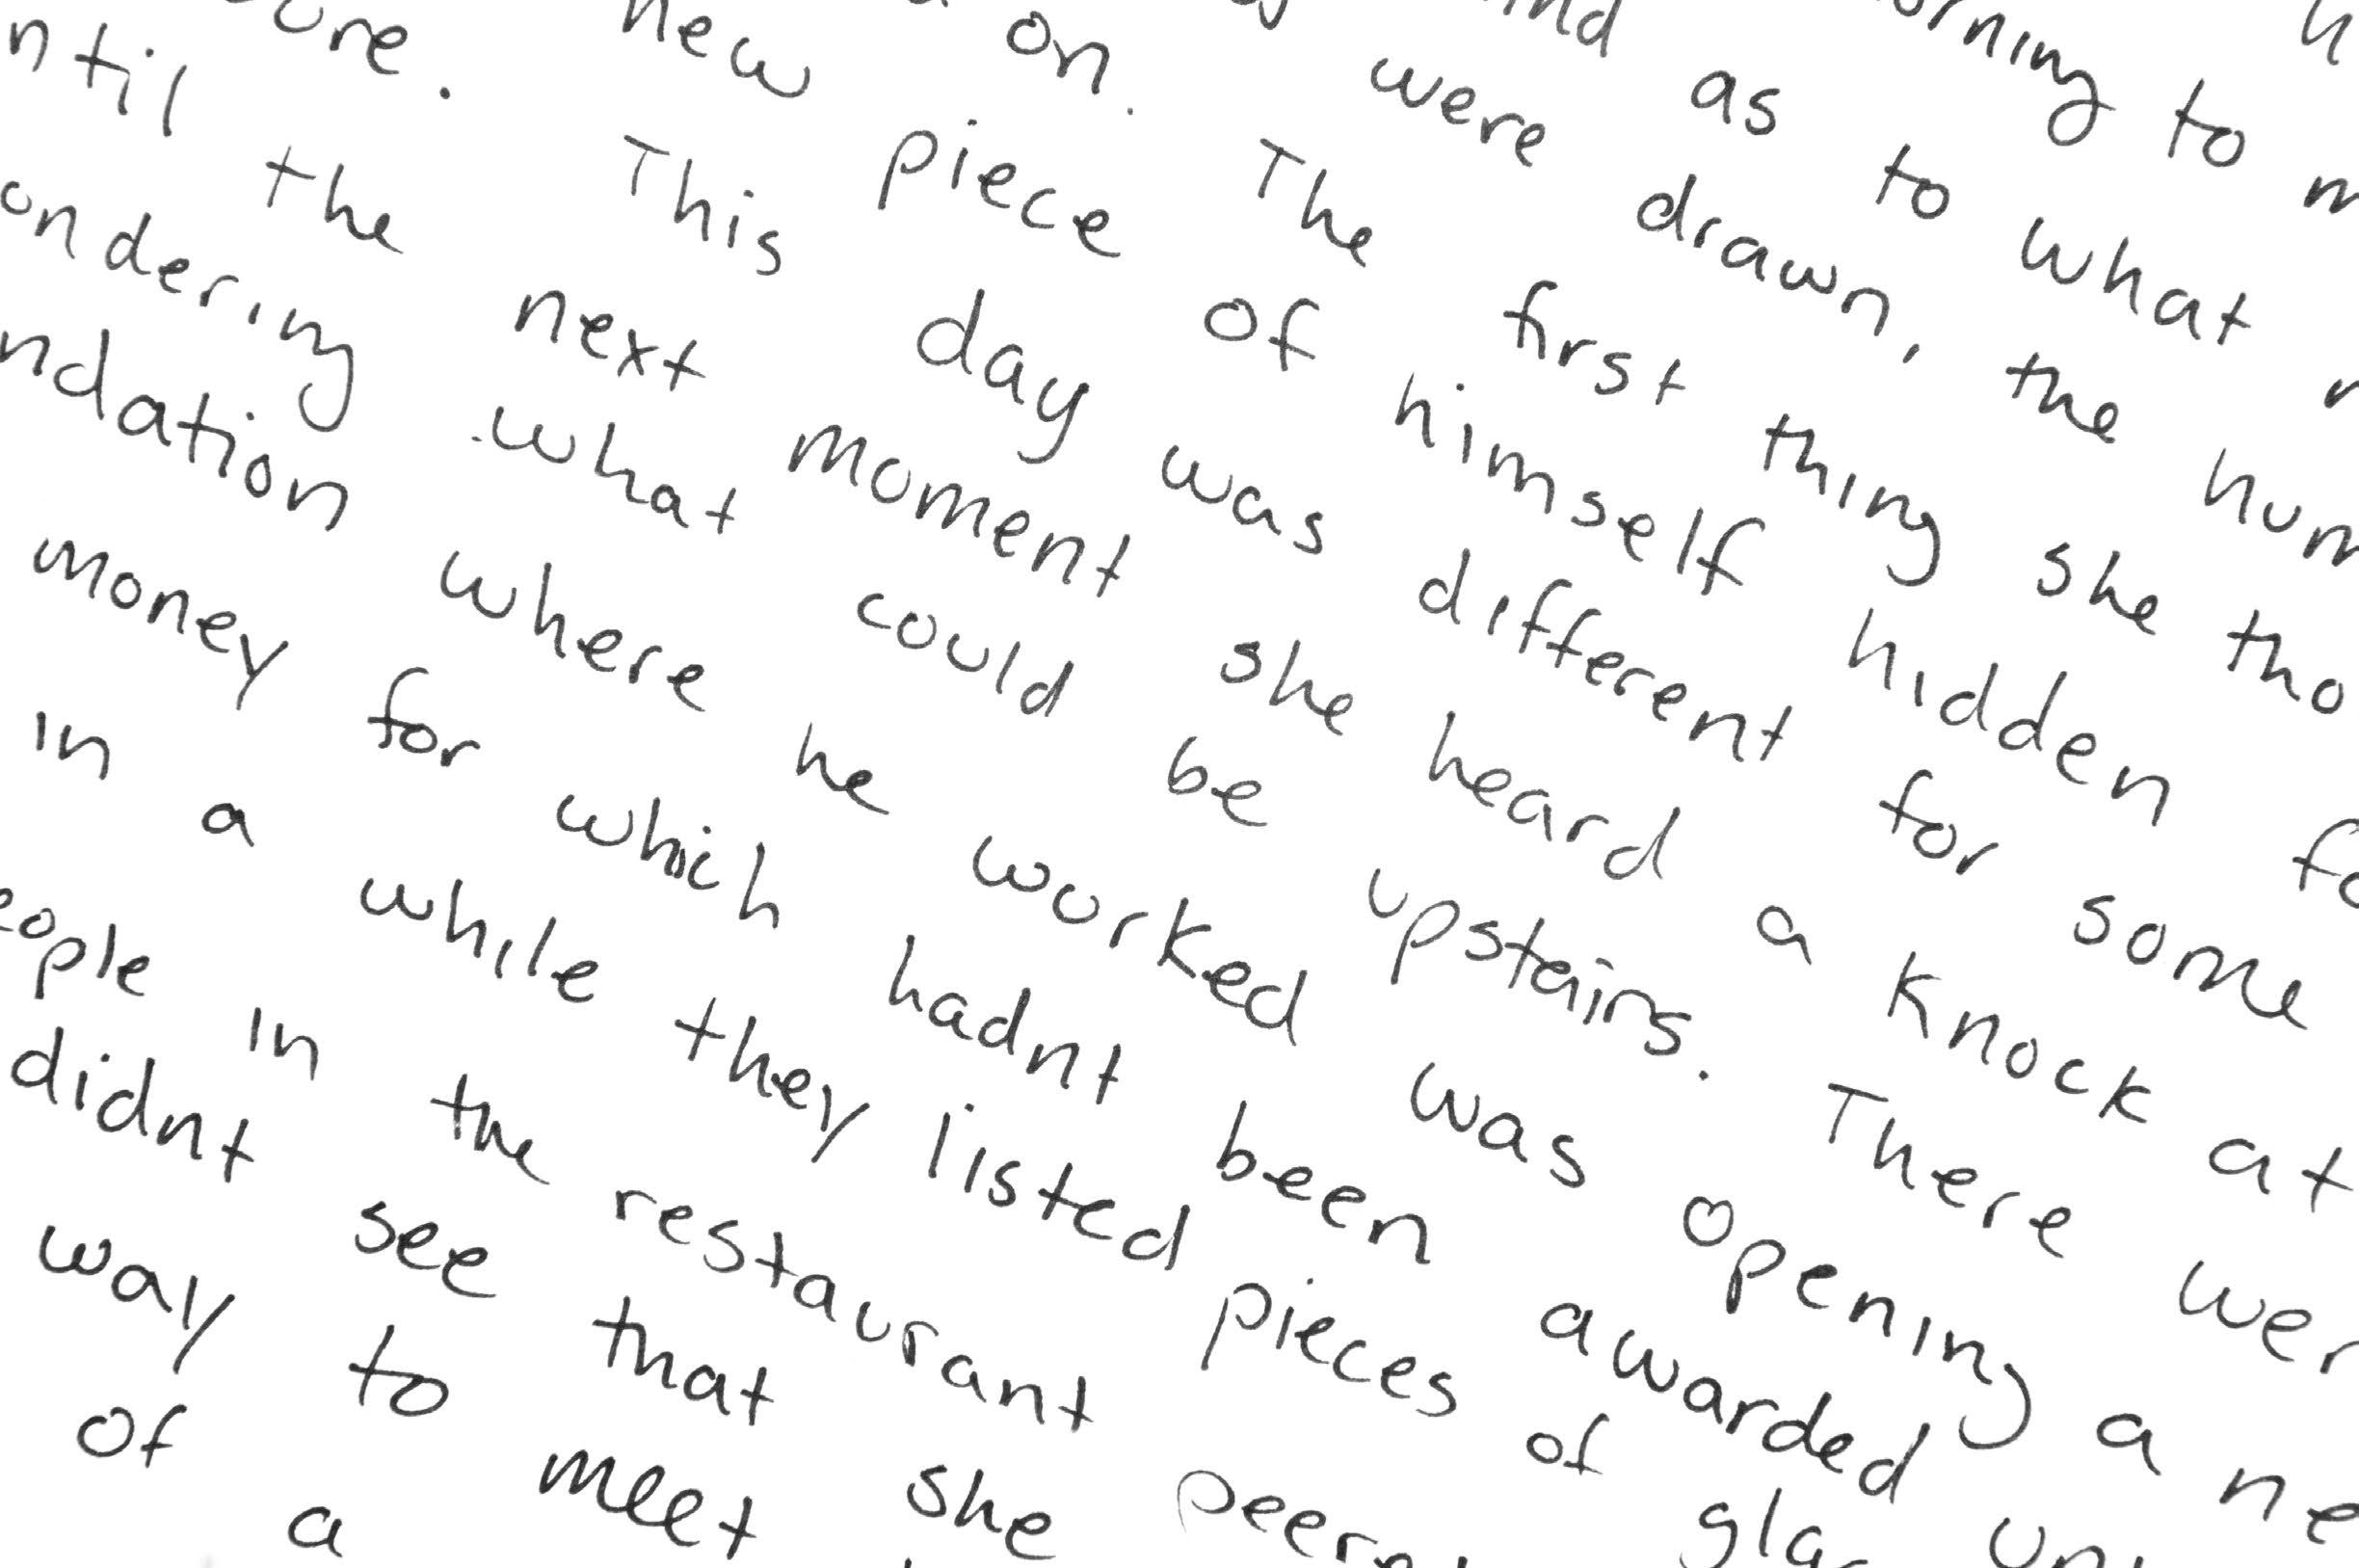 orning to
as to what
were drawn, the
on. The first thing she
new piece of himself hidden
This day was different for some
the next moment she heard a knock at
what could be upstairs. There
where he worked was opening a
money for which hadnt been awarded
in a while they listed pieces of
in the restaurant
didnt see that she
way to meet
of a